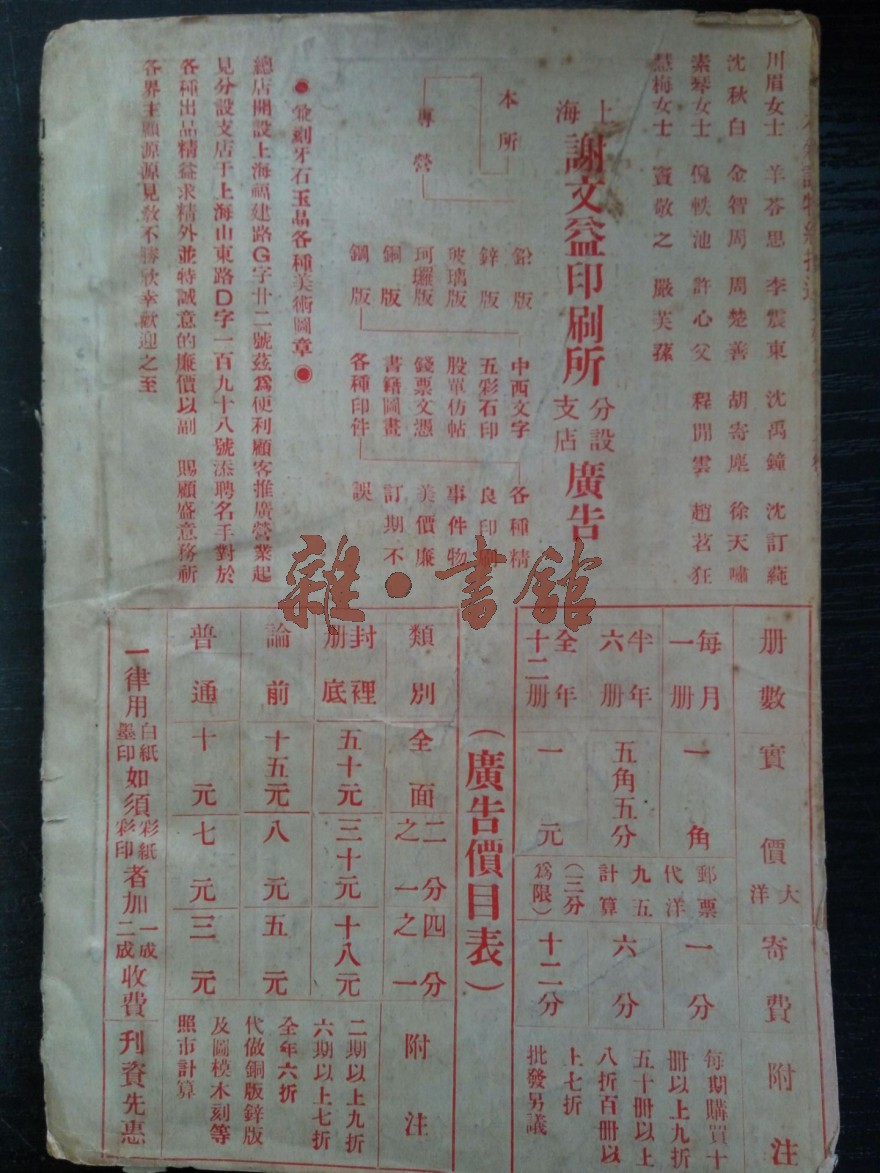 川眉女士 羊荅思 李震東 沈禹鐘 沈訂蒓
沈秋白 金智周 周楚善 胡寄塵 徐天嘯
素琴女士 倪軼池 許心父 程閒雲 趙茗狂
慧梅女士 竇敬之 嚴芙蓀
上海謝文益印刷所分設支店廣告
本所
專營
鉛版
鋅版
玻璃版
珂瓏版
銅版
鋼版
中西文字
五彩石印
股單仿帖
錢票文憑
書籍圖畫
各種印件
各種精
良印刷
事件物
美價廉
訂期不
誤
●兼刻牙石玉晶各種美術圖章●
總店開設上海福建路G字廿二號茲爲便利顧客推廣營業起
見分設支店于上海山東路D字一百九十八號添聘名手對於
各種出品精益求精外並特誠意的廉價以副 賜顧盛意務祈
各界主顧源源見教不勝欣幸歡迎之至
雜·書館
册數 實價 大洋 寄費 附注
每月一册 一角 一分
半年六册 五角五分 六分
全年十二册 一元 十二分
郵票
代洋
九五
計算
(三分
爲限)
每期購買十
冊以上九折
五十冊以上
八折百冊以
上七折
批發另議
(廣告價目表)
類別 全面 二分之一 四分之一 附注
封裡册底 五十元 三十元 十八元
論前 十五元 八元 五元
普通 十元 七元 三元
二期以上九折
六期以上七折
全年六折
代做銅版鋅版
及圖模木刻等
照市計算
一律用白紙墨印如須彩紙彩印者加一成二成收費 刊資先惠